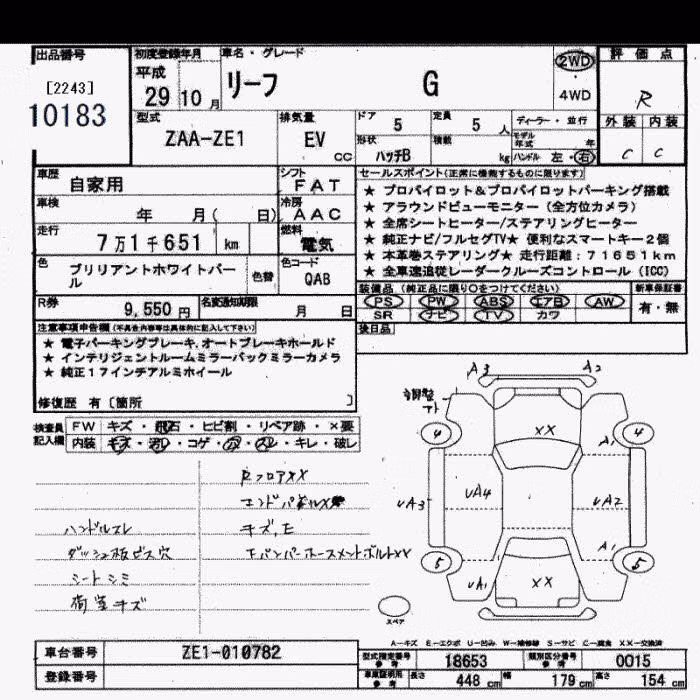 出品番号
[2243]
10183
初度登録年月
平成
29 10 月
車名・グレード
リーフ G
2WD
4WD
評価点
R
外装 内装
C C
型式
ZAA-ZE1
排気量
EV
CC
ドア 5
定員 5 人
形状
ハッチB
積載
kg
ディーラー・並行
モデル年式 年
ハンドル 左・右
車歴
自家用
シフト
FAT
車検
年 月( 日)
冷房
AAC
走行
7万1千651 km
燃料
電気
色
ブリリアントホワイトパール
色替
色コード
QAB
R券
9,550 円
名変通知期限
月 日
セールスポイント(正常に機能するものに限ります)
★ プロパイロット&プロパイロットパーキング搭載
★ アラウンドビューモニター(全方位カメラ)
★ 全席シートヒーター/ステアリングヒーター
★ 純正ナビ/フルセグTV★ 便利なスマートキー2個
★ 本革巻ステアリング★ 走行距離:71651km
★ 全車速追従レーダークルーズコントロール(ICC)
装備品(純正品に限り○をつけてください)
PS PW ABS エアB AW
SR ナビ TV カワ
新車保証書
有・無
後日品
注意事項申告欄(不具合内容等は具体的に記入して下さい)
★ 電子パーキングブレーキ.オートブレーキホールド
★ インテリジェントルームミラーバックミラーカメラ
★ 純正17インチアルミホイール
修復歴 有〔箇所 〕
検査員記入欄
FW キズ・飛石・ヒビ割・リペア跡・×要
内装 キズ・・コゲ・・スレ・キレ・破レ
RフロアXX
エンドパネルX
キズ,E
ハンドルスレ
ダッシュ板ビス穴
シートシミ
荷室キズ
FバンパーホースメントボルトXX
A3 A2
XX
4 4
A1
UA3 UA4 UA2
A1
5 5
UA1 XX
スペア
A-キズ E-エクボ U-凹み W-補修跡 S-サビ C-腐食 XX-交換済
車台番号
ZE1-010782
登録番号
型式指定番号
参考
18653
類別区分番号
参考
0015
車庫証明用
参考
長さ 448 cm 幅 179 cm 高さ 154 cm